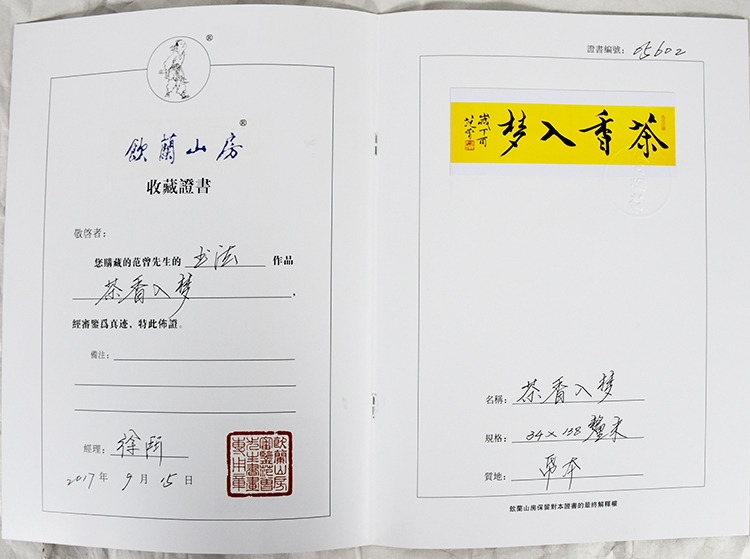 ®
飲蘭山房®
收藏證書
敬啓者：
您購藏的范曾先生的 书法 作品
茶香入梦，
經審鑒爲真迹，特此佈證。
備注：
經理：徐
2017年 9月 15日
飲蘭山房
審鑒范曾
先生書畫
專用章
證書編號：05602
梦入香茶
歲丁酉
范曾
名稱：茶香入梦
規格：34×138 釐米
質地：纸本
飲蘭山房保留對本證書的最終解釋權